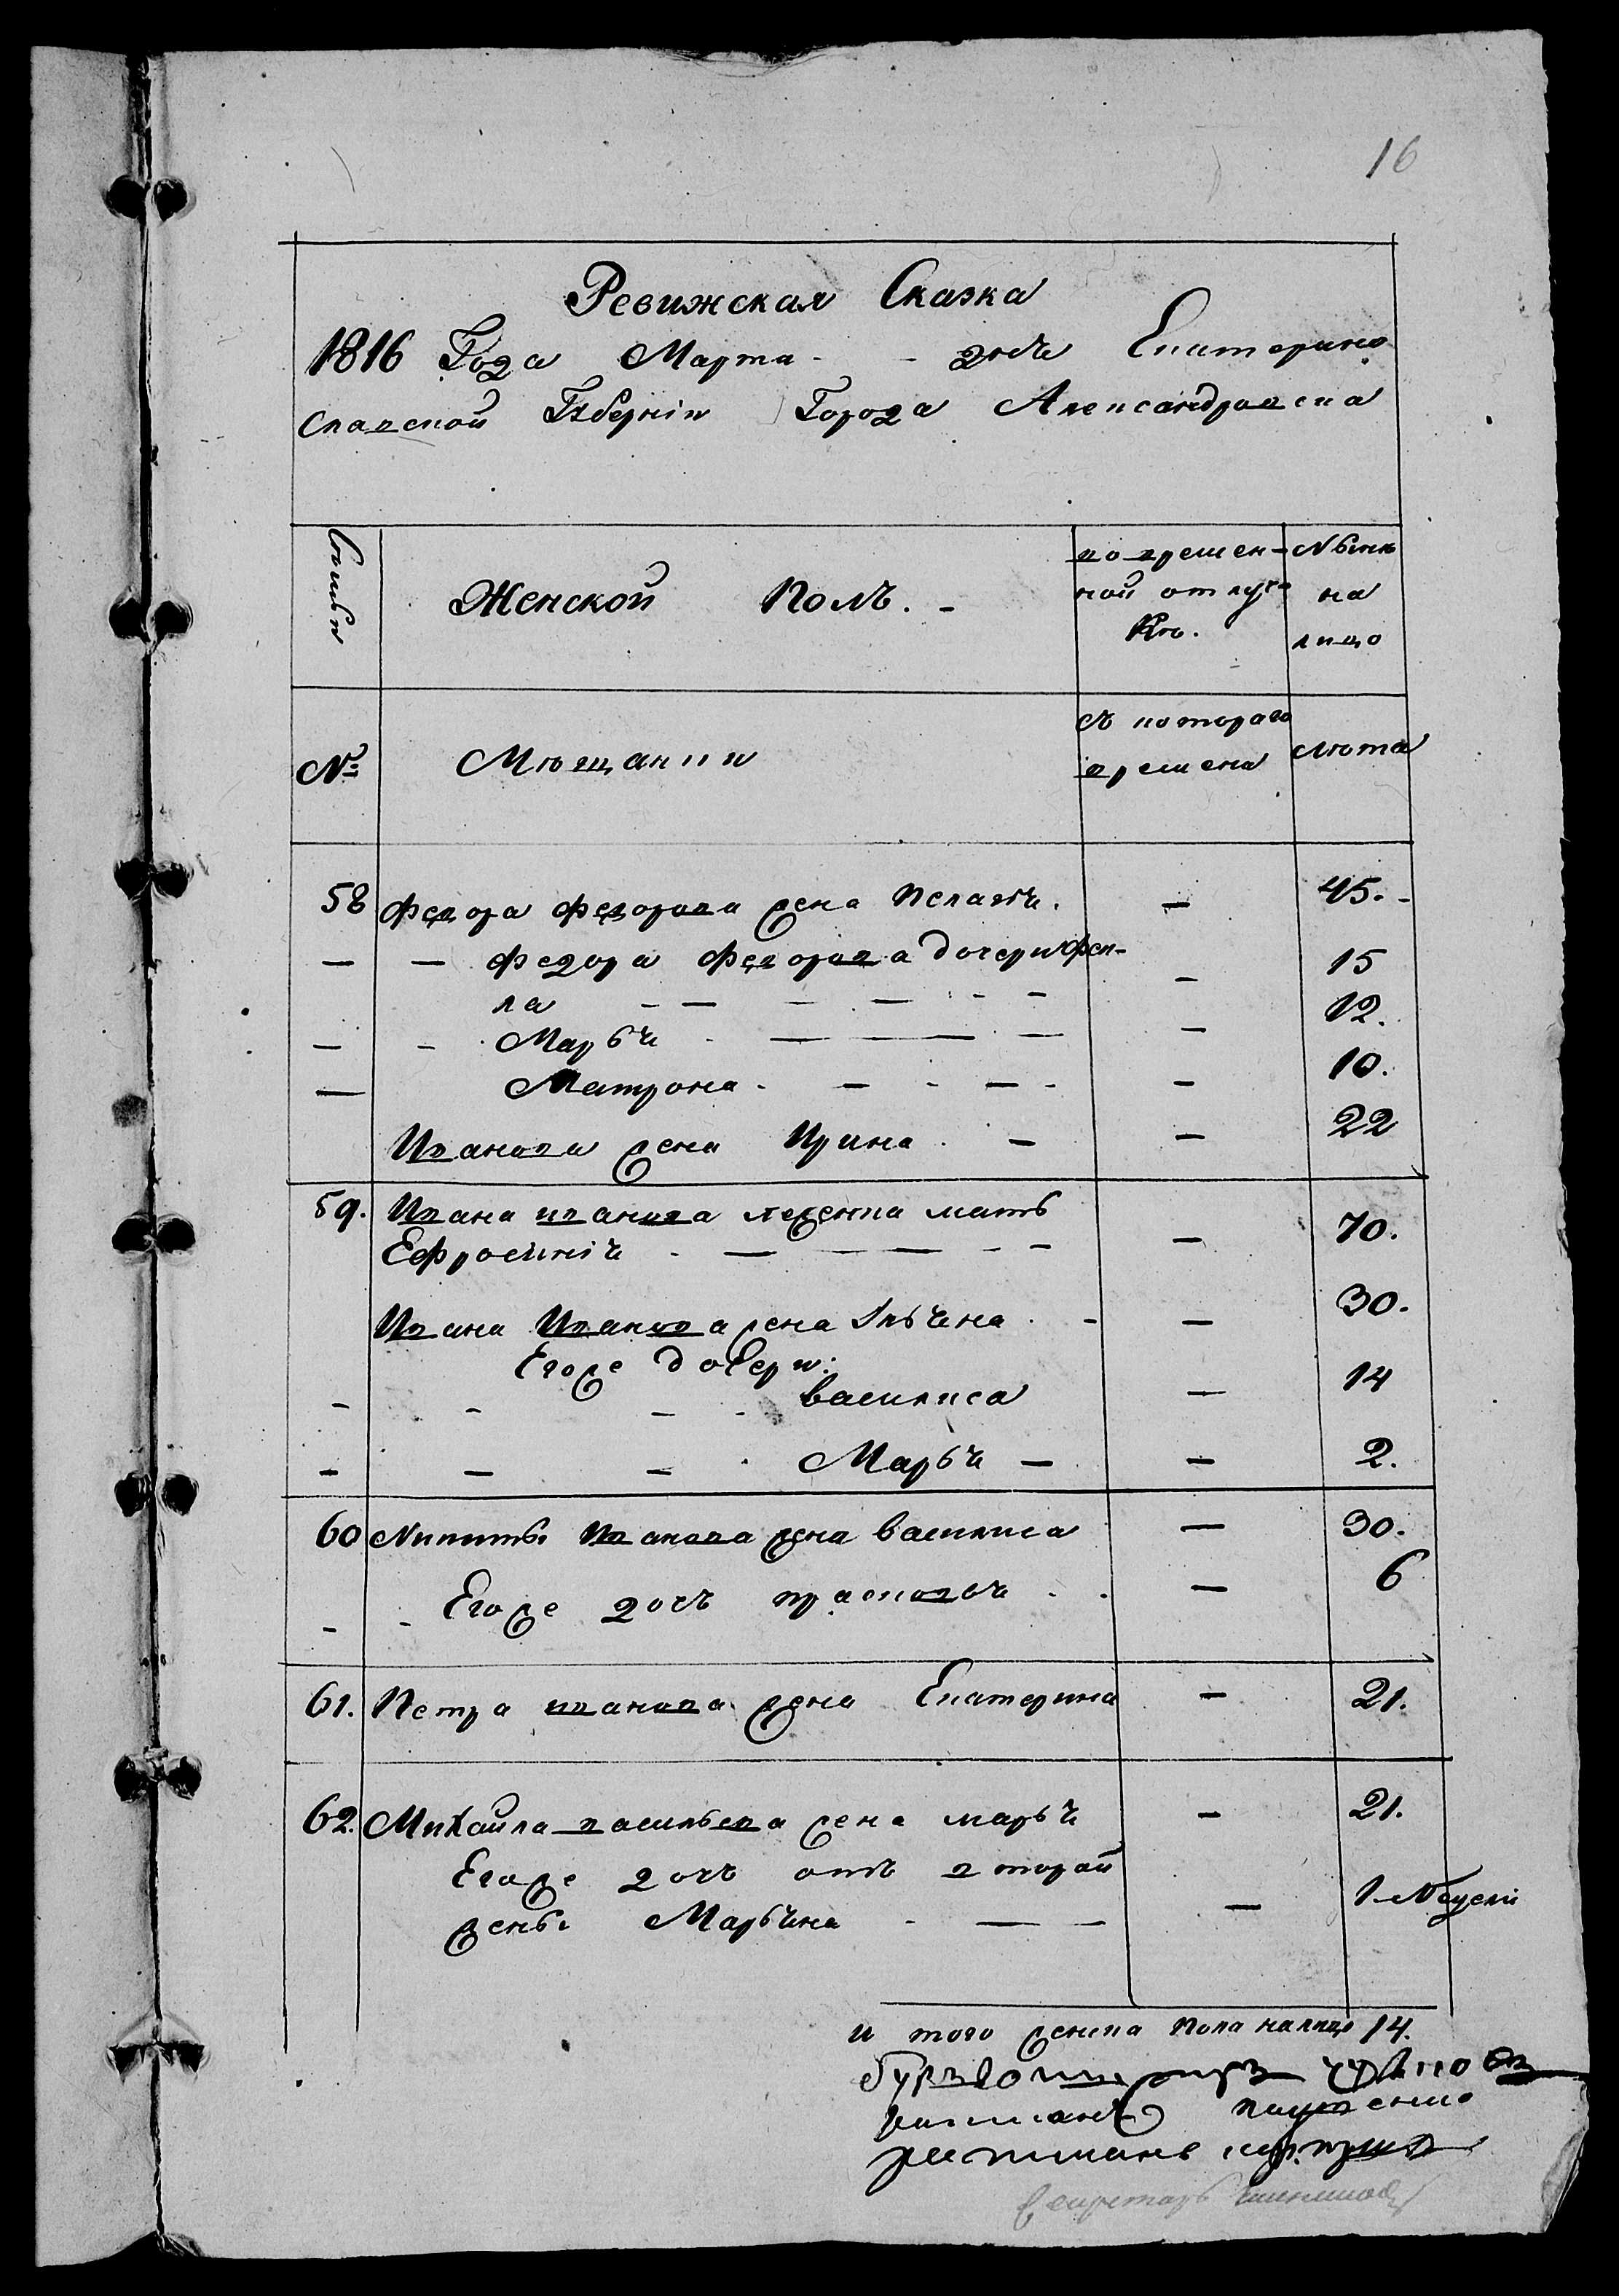 16
Ревижская Сказка
1816 Года Марта - - дня Екатерино
Славской Губернiи Города Александровска
Семьи
Женской Полъ. -
во времен-
ной отлуч
Кѣ.
Нынѣ
на
лицо
№
Мѣщанки
Съ котораго
времена
Лѣта
58 Федора Федорова жена Пелагѣя. — 45. -
— — Федора Федорова дочери Фек-
ла — — — — — 15
— - Марья - — — — — 12.
— Матрона - — - — - — 10.
Иванова жена Ирина . — — 22
59. Ивана иванова леженка мать
Ефросинiя - — — - — 70.
Ивана Иванова жена Ульяна . - — 30.
Егоже дочери:
- - - - василиса — 14
- — — . Марья — — 2.
60 Никиты Иванова жена василиса — 30.
- - Егоже дочъ прасковья . . — 6
61. Петра иванова жена Екатерина — 21.
62. Михайла васильева жена марья — 21.
Егоже дочъ отъ второй
жены Марьяна - — — — 1 Недели
и того женска пола налицо 14.
Секретарь